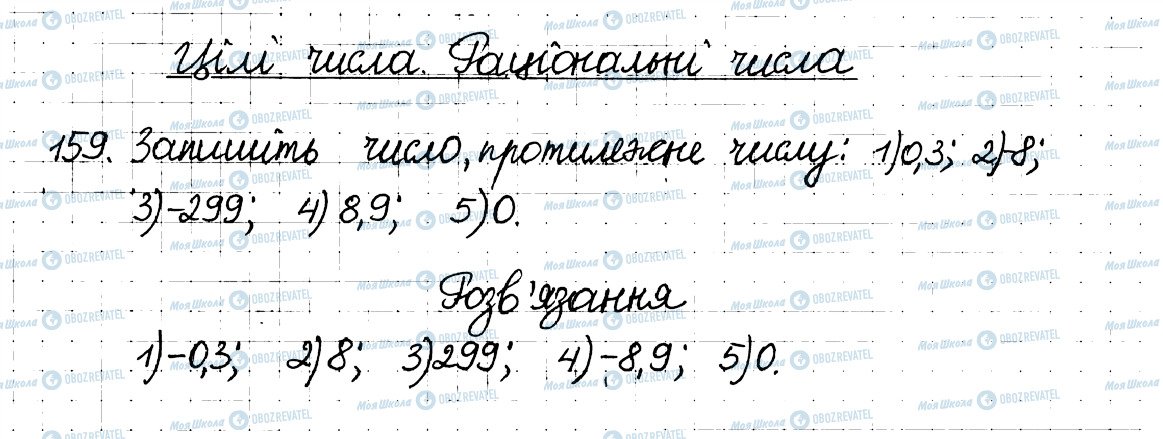 Цілі числа. Раціональні числа
159. Запишіть число, протилежне числу: 1) 0,3; 2) -8;
3) -299; 4) 8,9; 5) 0.
Розв'язання
1) -0,3; 2) 8; 3) 299; 4) -8,9; 5) 0.